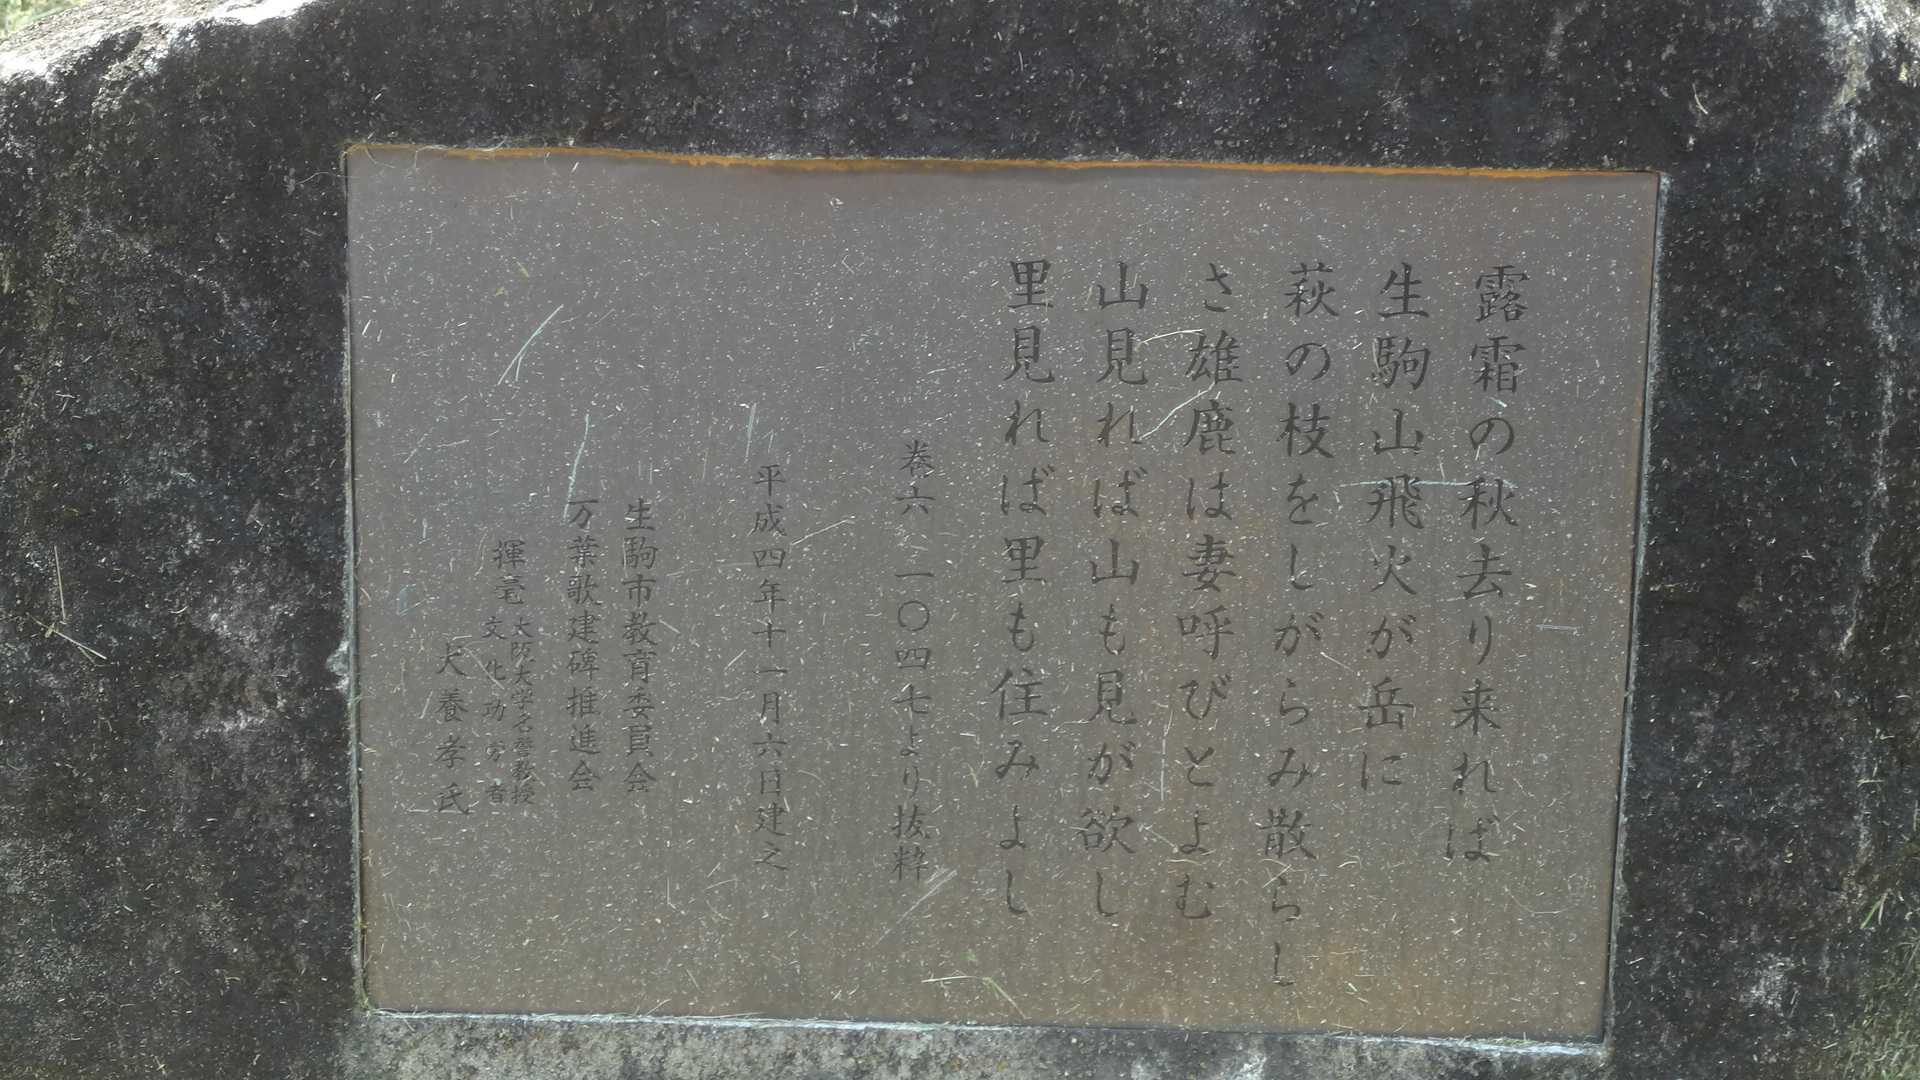 露霜の秋去り来れば
生駒山飛火が岳に
萩の枝をしがらみ散らし
さ雄鹿は妻呼びとよむ
山見れば山も見が欲し
里見れば里も住みよし
巻六、一〇四七より抜粋
平成四年十一月六日建之
生駒市教育委員会
万葉歌建碑推進会
揮毫 大阪大学名誉教授
文化功労者
犬養孝氏